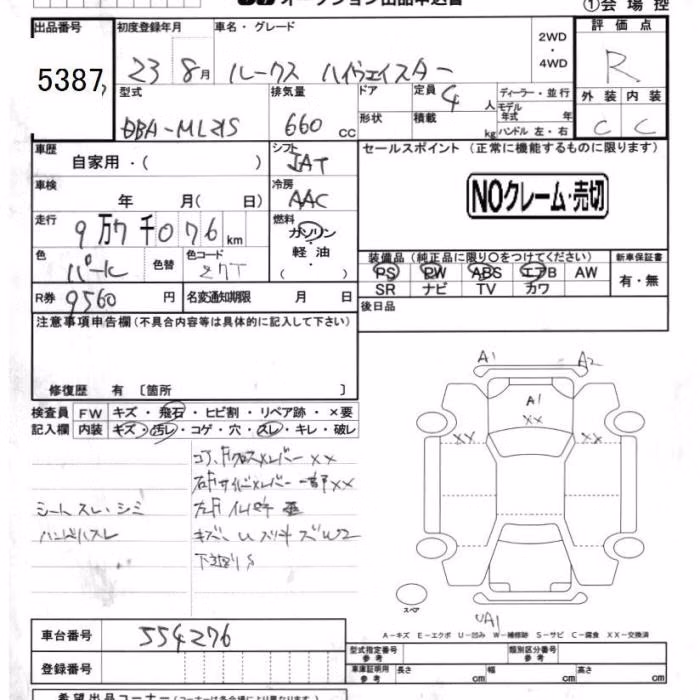 オークション出品申込書
① 会場控
出品番号 5387
初度登録年月 23 8月
車名・グレード ルークス ハイウェイスター
2WD・4WD
評価点 R
外装 C 内装 C
型式 DBA-ML21S
排気量 660 cc
ドア 形状
定員 4 人
積載 kg
ディーラー・並行
モデル年式 年
ハンドル 左・右
車歴 自家用・( )
シフト AT
セールスポイント (正常に機能するものに限ります)
NOクレーム・売切
車検 年 月( 日)
冷房 AAC
走行 9万7千076km
燃料 ガソリン・軽油・( )
色 パール 色替 色コード
装備品(純正品に限り○をつけてください)
PS PW ABS エアB AW
SR ナビ TV カワ
新車保証書 有・無
R券 9560円 名変通知期限 月 日
後日品
注意事項申告欄(不具合内容等は具体的に記入して下さい)
修復歴 有 [箇所 ]
検査員記入欄
FW キズ・飛石・ヒビ割・リペア跡・×要
内装 キズ・汚レ・コゲ・穴・スレ・キレ・破レ
シート スレ・シミ
ハンドルスレ
A1 A2
A1
XX
XX XX
スペア
UA1
A-キズ E-エクボ U-凹み W-補修跡 S-サビ C-腐食 XX-交換済
車台番号 554276
登録番号
型式指定番号 参考
類別区分番号 参考
車庫証明用 参考 長さ cm 幅 cm 高さ cm
希望出品コーナー